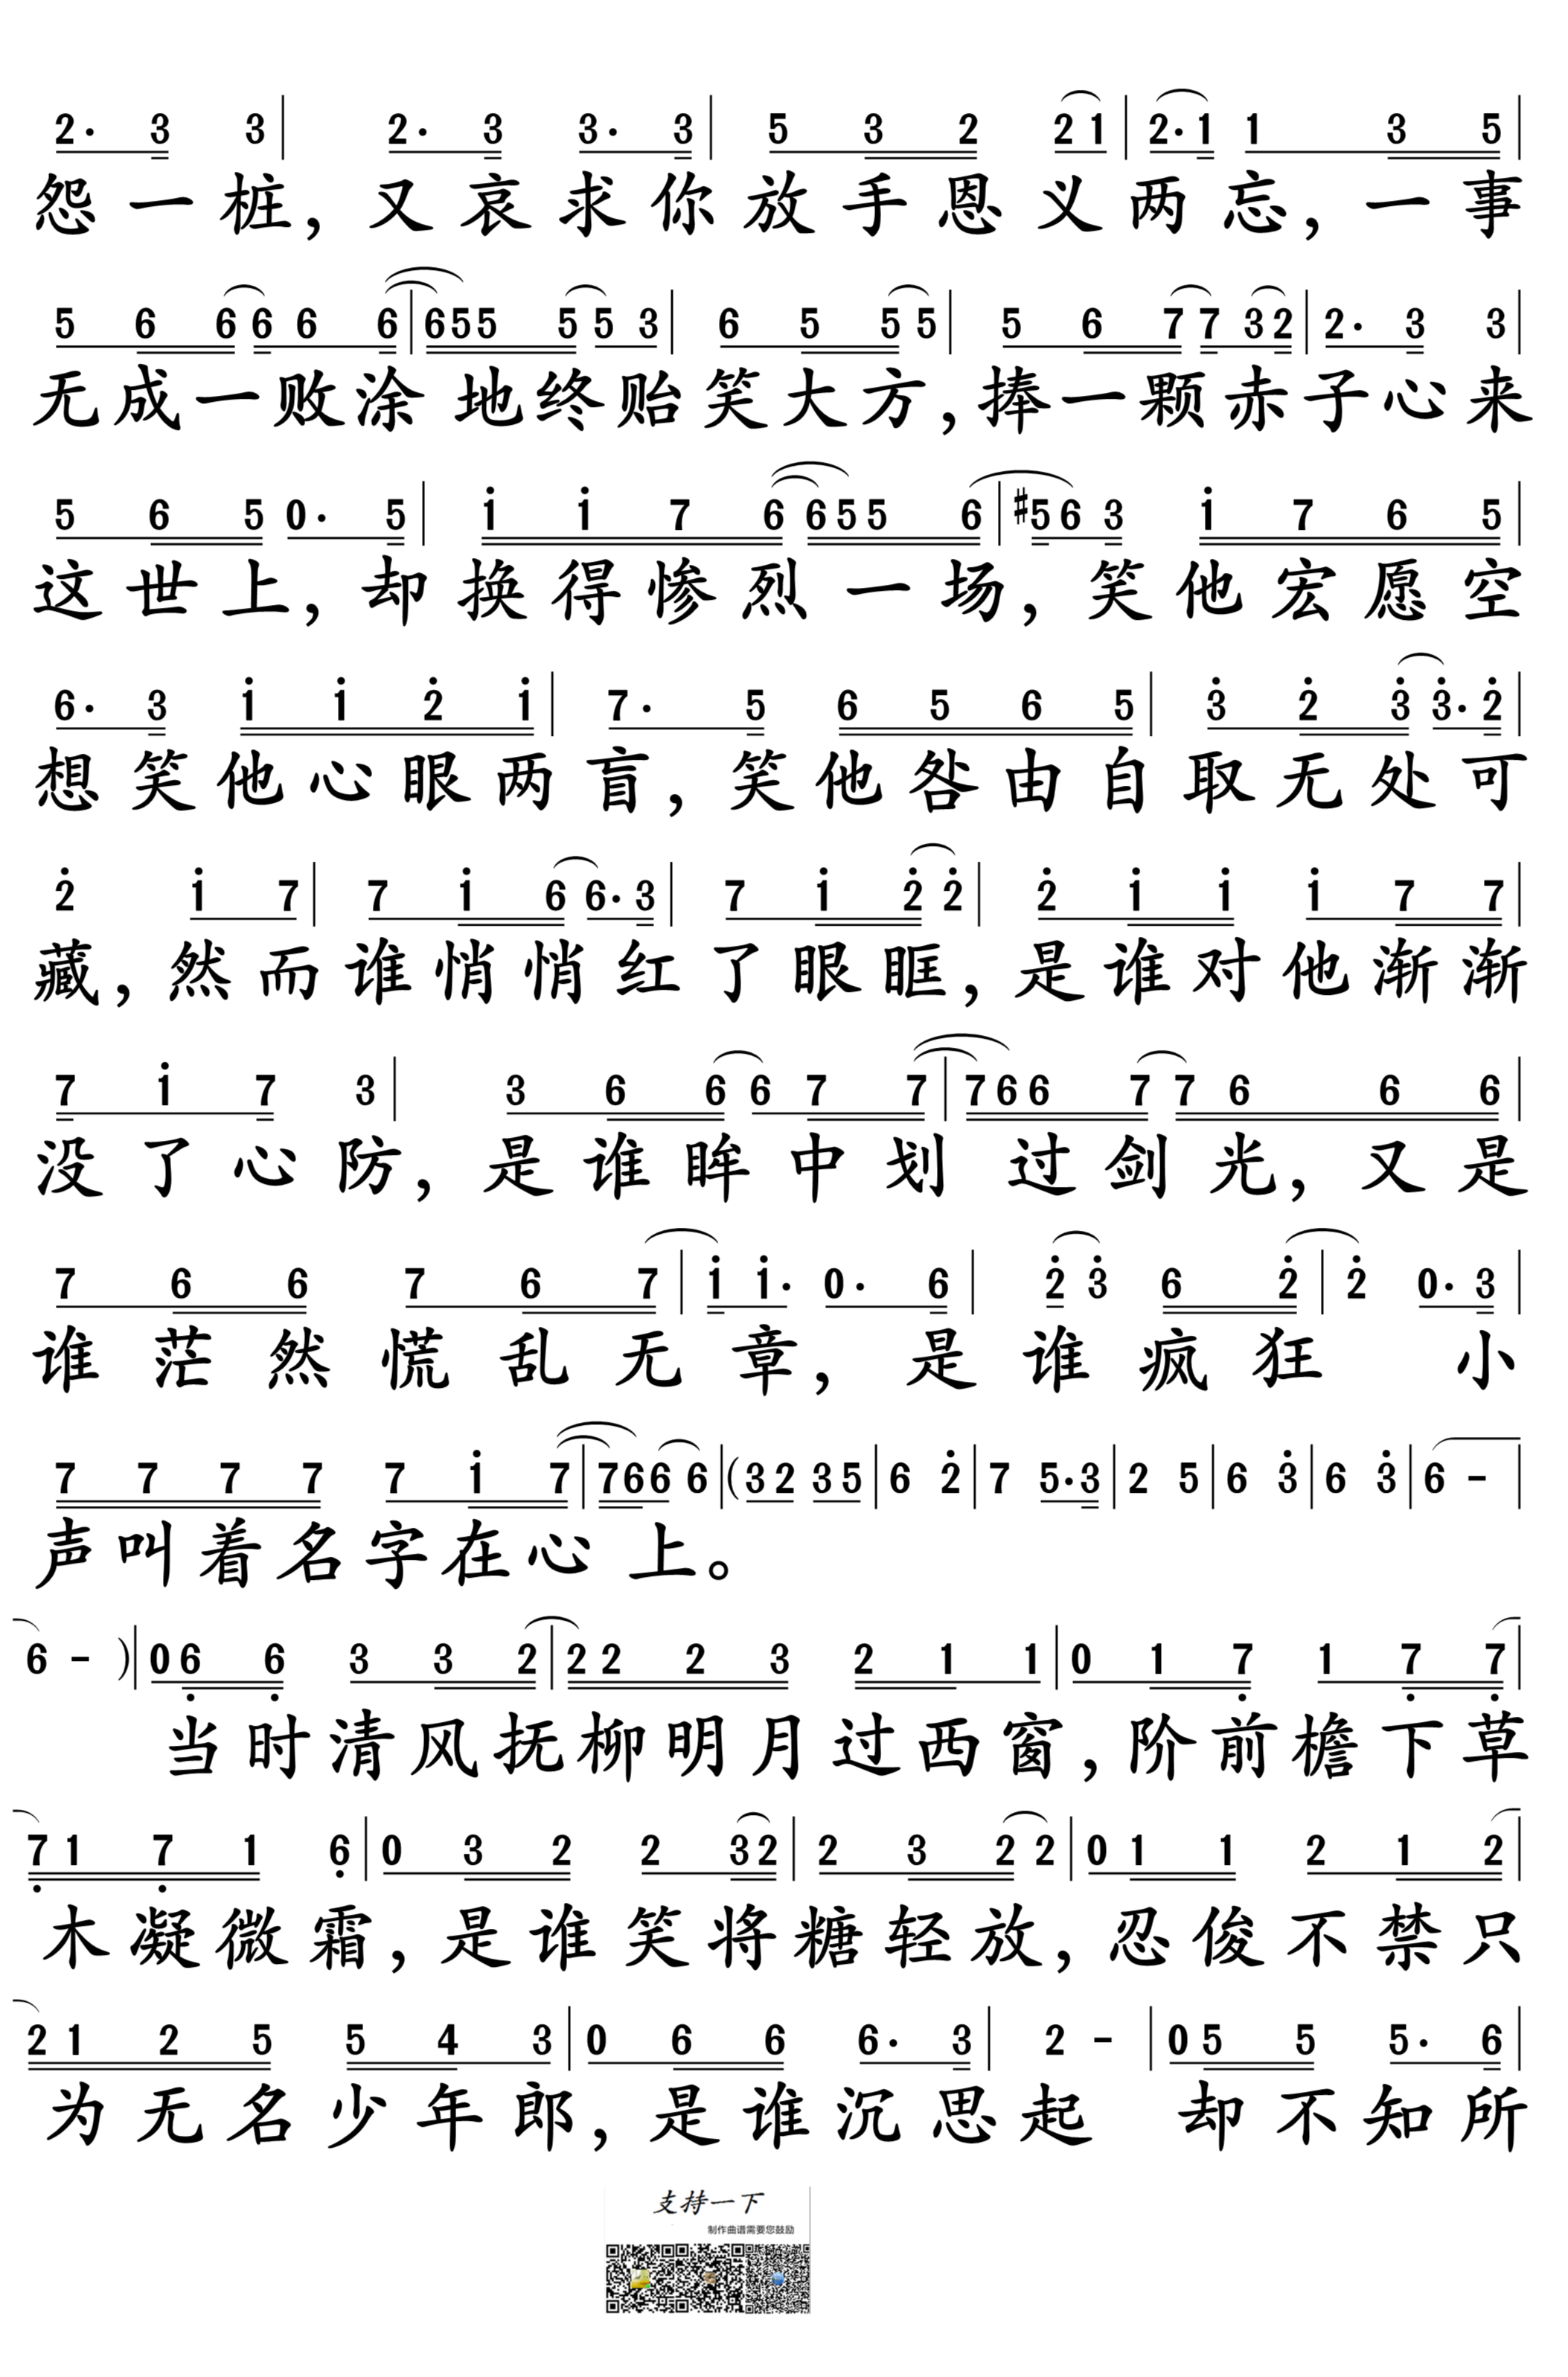 2· 3 3 | 2· 3 3· 3 | 5 3 2 2 1 | 2· 1 1 3 5 |
怨一桩，又哀求你放手恩义两忘，一事
5 6 6 6 6 6 | 6 5 5 5 5 3 | 6 5 5 5 | 5 6 7 7 3 2 | 2· 3 3 |
无成一败涂地终贻笑大方，捧一颗赤子心来
5 6 5 0· 5 | i i 7 6 6 5 5 6 | #5 6 3 i 7 6 5 |
这世上，却换得惨烈一场，笑他宏愿空
6· 3 i i 2̇ i | 7· 5 6 5 6 5 | 3̇ 2̇ 3̇ 3̇· 2̇ |
想笑他心眼两盲，笑他咎由自取无处可
2̇ i 7 | 7 i 6 6· 3 | 7 i 2̇ 2̇ | 2̇ i i i 7 7 |
藏，然而谁悄悄红了眼眶，是谁对他渐渐
7 i 7 3 | 3 6 6 6 7 7 | 7 6 6 7 7 6 6 6 |
没了心防，是谁眸中划过剑光，又是
7 6 6 7 6 7 | i i· 0· 6 | 2̇ 3̇ 6 2̇ | 2̇ 0· 3 |
谁茫然慌乱无章，是谁疯狂 小
7 7 7 7 7 i 7 | 7 6 6 6 | (3 2 3 5 | 6 2̇ | 7 5· 3 | 2 5 | 6 3̇ | 6 3̇ | 6 - |
声叫着名字在心上。
6 - ) | 0 6̣ 6̣ 3 3 2 | 2 2 2 3 2 1 1 | 0 1 7̣ 1 7̣ 7̣ |
当时清风抚柳明月过西窗，阶前檐下草
7̣ 1 7̣ 1 6̣ | 0 3 2 2 3 2 | 2 3 2 2 | 0 1 1 2 1 2 |
木凝微霜，是谁笑将糖轻放，忍俊不禁只
2 1 2 5 5 4 3 | 0 6 6 6· 3 | 2 - | 0 5 5 5· 6 |
为无名少年郎，是谁沉思起 却不知所
支持一下
制作曲谱需要您鼓励